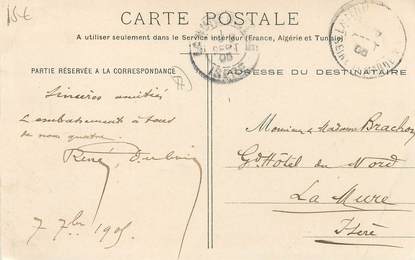 15 €
CARTE POSTALE
A utiliser seulement dans le Service intérieur (France, Algérie et Tunisie)
PARTIE RÉSERVÉE A LA CORRESPONDANCE
ADRESSE DU DESTINATAIRE
Sincères amitiés
& embrassement à tous
de nous quatre.
René
7 7bre 1905
Monsieur & Madame Brachon
Gd Hôtel du Nord
La Mure
Isère